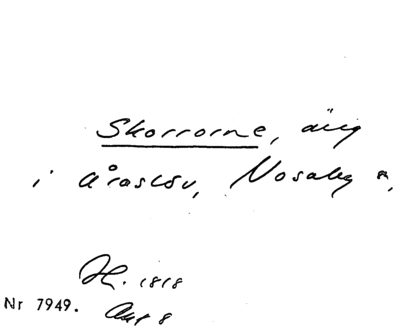 Skorrorne, äng
i Åraslöv, Nosaby sn,
H. 1818
Nr 7949. Akt 8